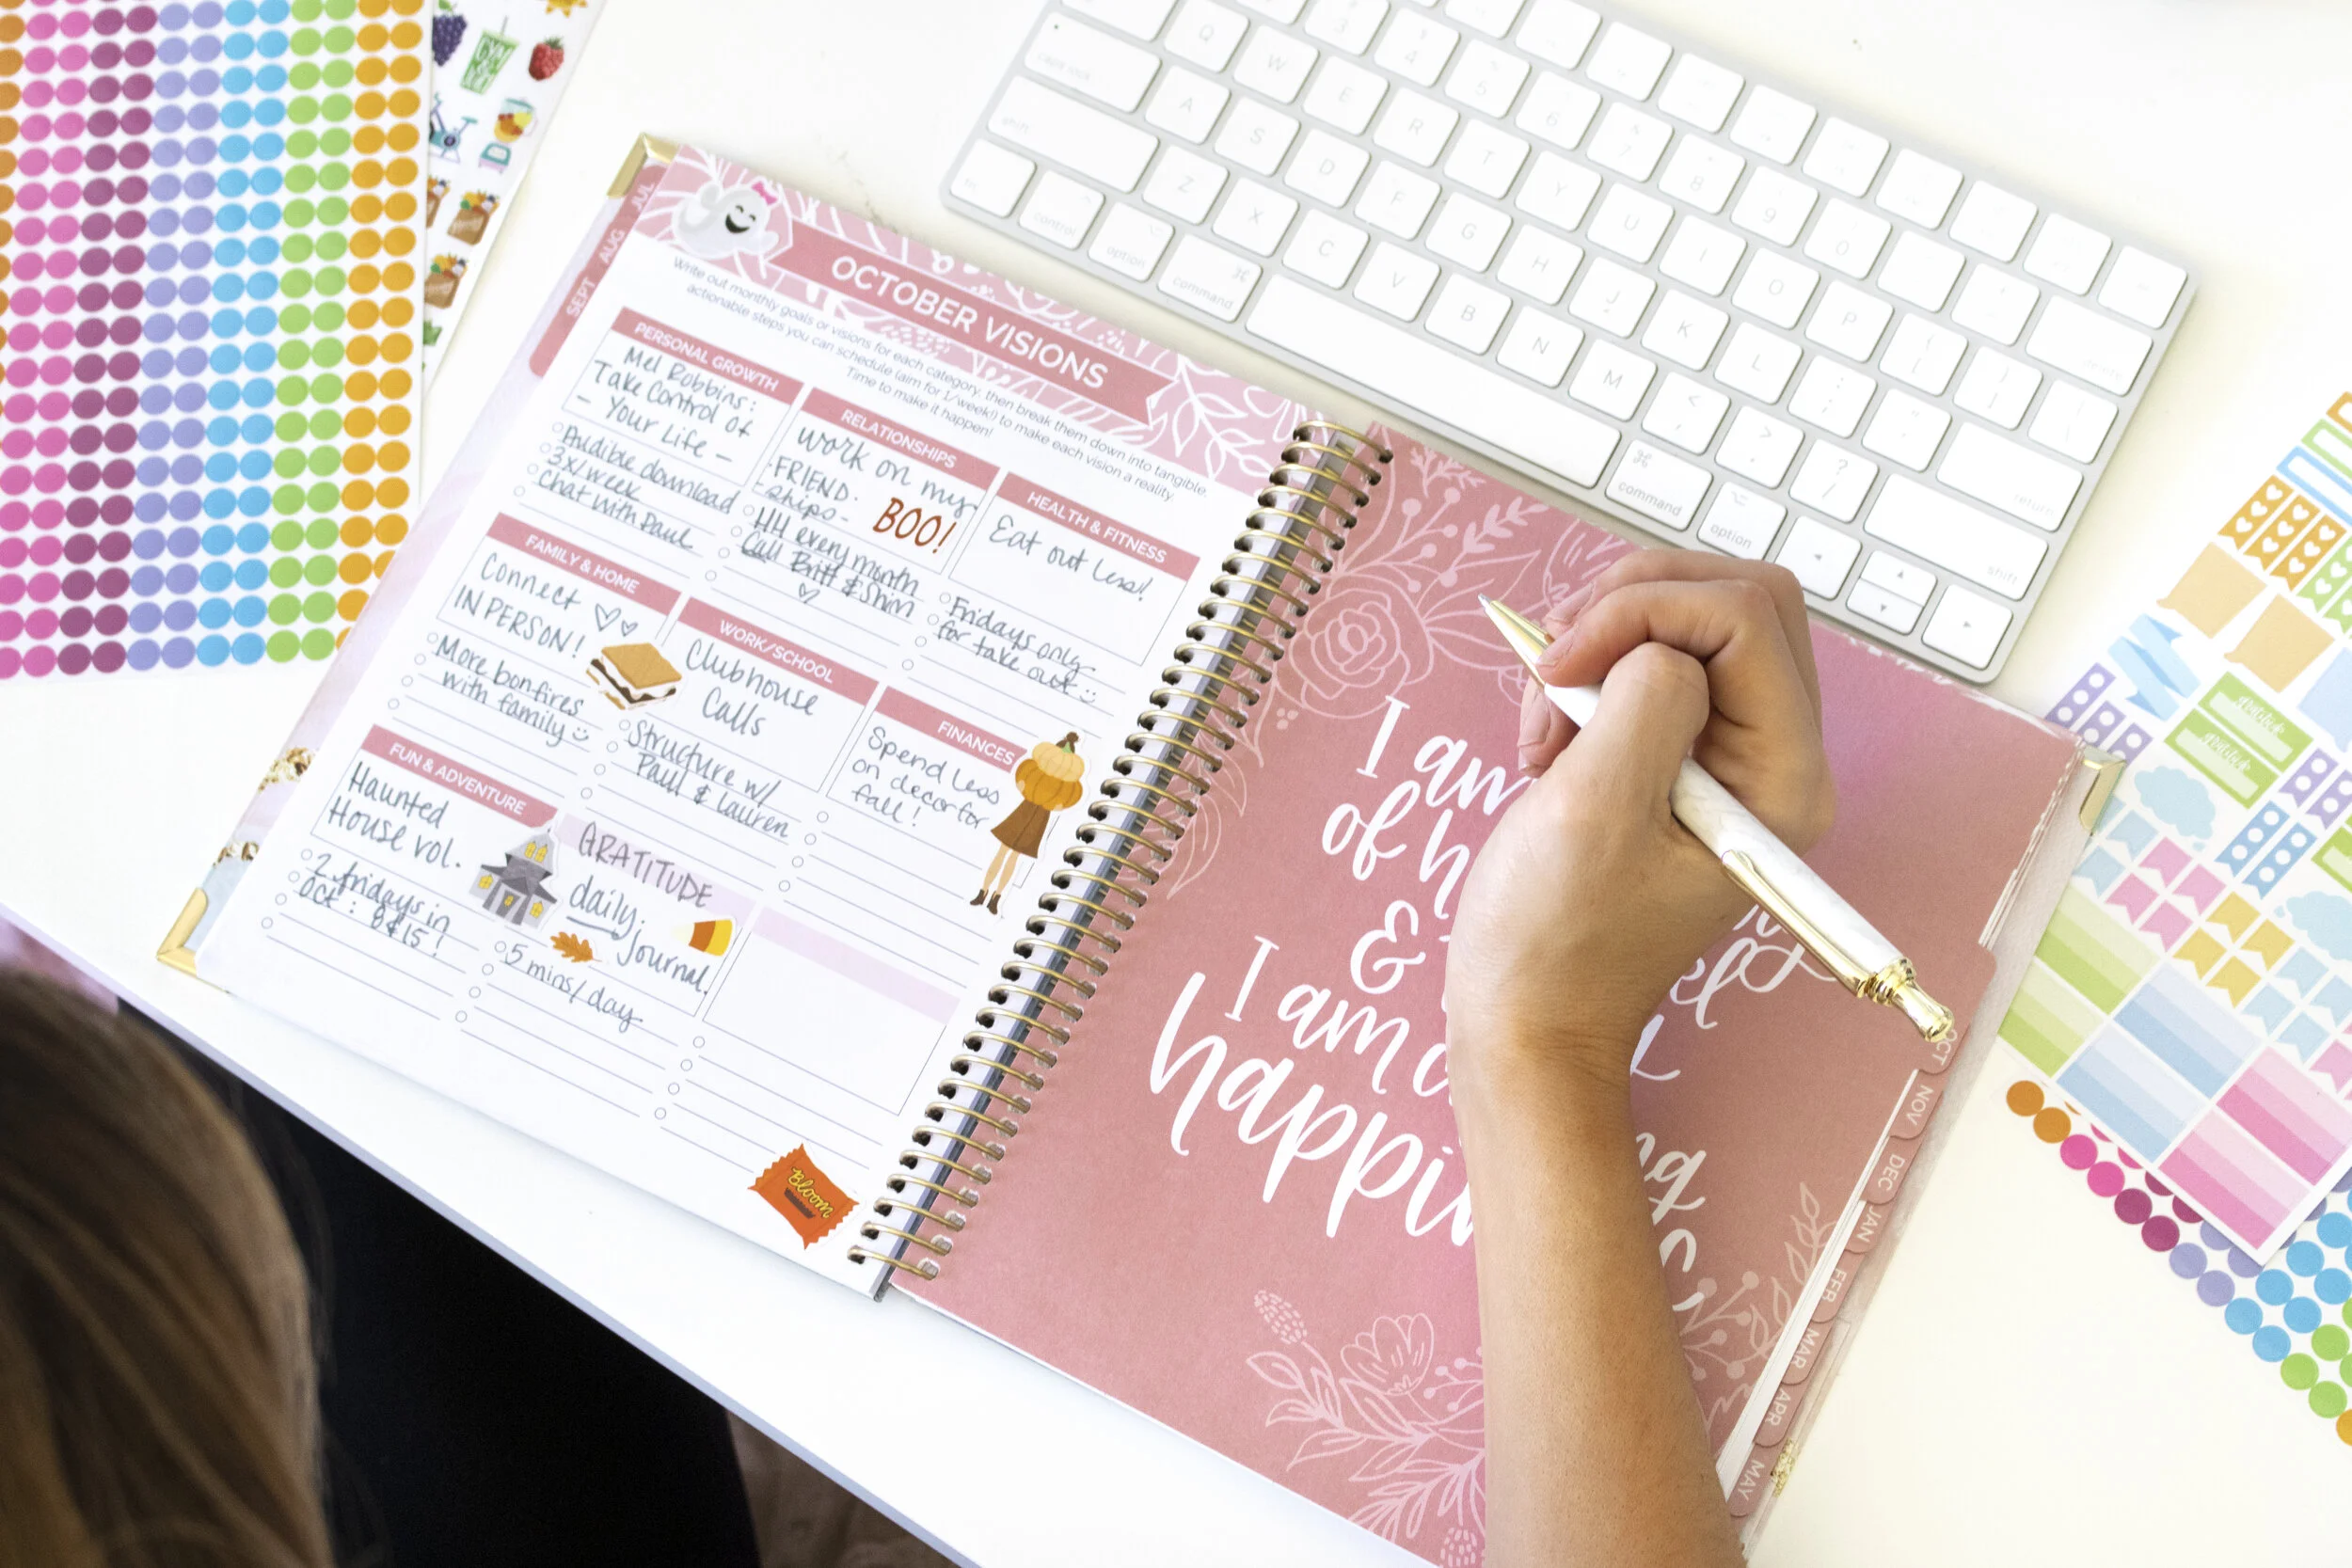 JUL
AUG
SEPT
OCTOBER VISIONS
Write out monthly goals or visions for each category, then break them down into tangible,
actionable steps you can schedule (aim for 1/week!) to make each vision a reality.
Time to make it happen!
PERSONAL GROWTH
Mel Robbins:
Take Control of
- Your Life -
Audible download
3x/week
Chat with Paul
RELATIONSHIPS
Work on my
FRIEND-
ships-
BOO!
HH every month
Call Britt & Shim
HEALTH & FITNESS
Eat out less!
Fridays only
for take out
FAMILY & HOME
Connect
IN PERSON!
More bonfires
with family
WORK/SCHOOL
Clubhouse
Calls
Structure w/
Paul & Lauren
FINANCES
Spend less
on decor for
fall!
FUN & ADVENTURE
Haunted
House vol.
2 fridays in
Oct: 8 & 15!
GRATITUDE
daily
journal.
5 mins/day
Bloom
I am
of h
&
I am
happi
ng
OCT
NOV
DEC
JAN
FEB
MAR
APR
MAY
caps lock
shift
fn
control
option
command
Q W E R T Y U I O P
A S D F G H J K L
Z X C V B N M
command
option
return
shift